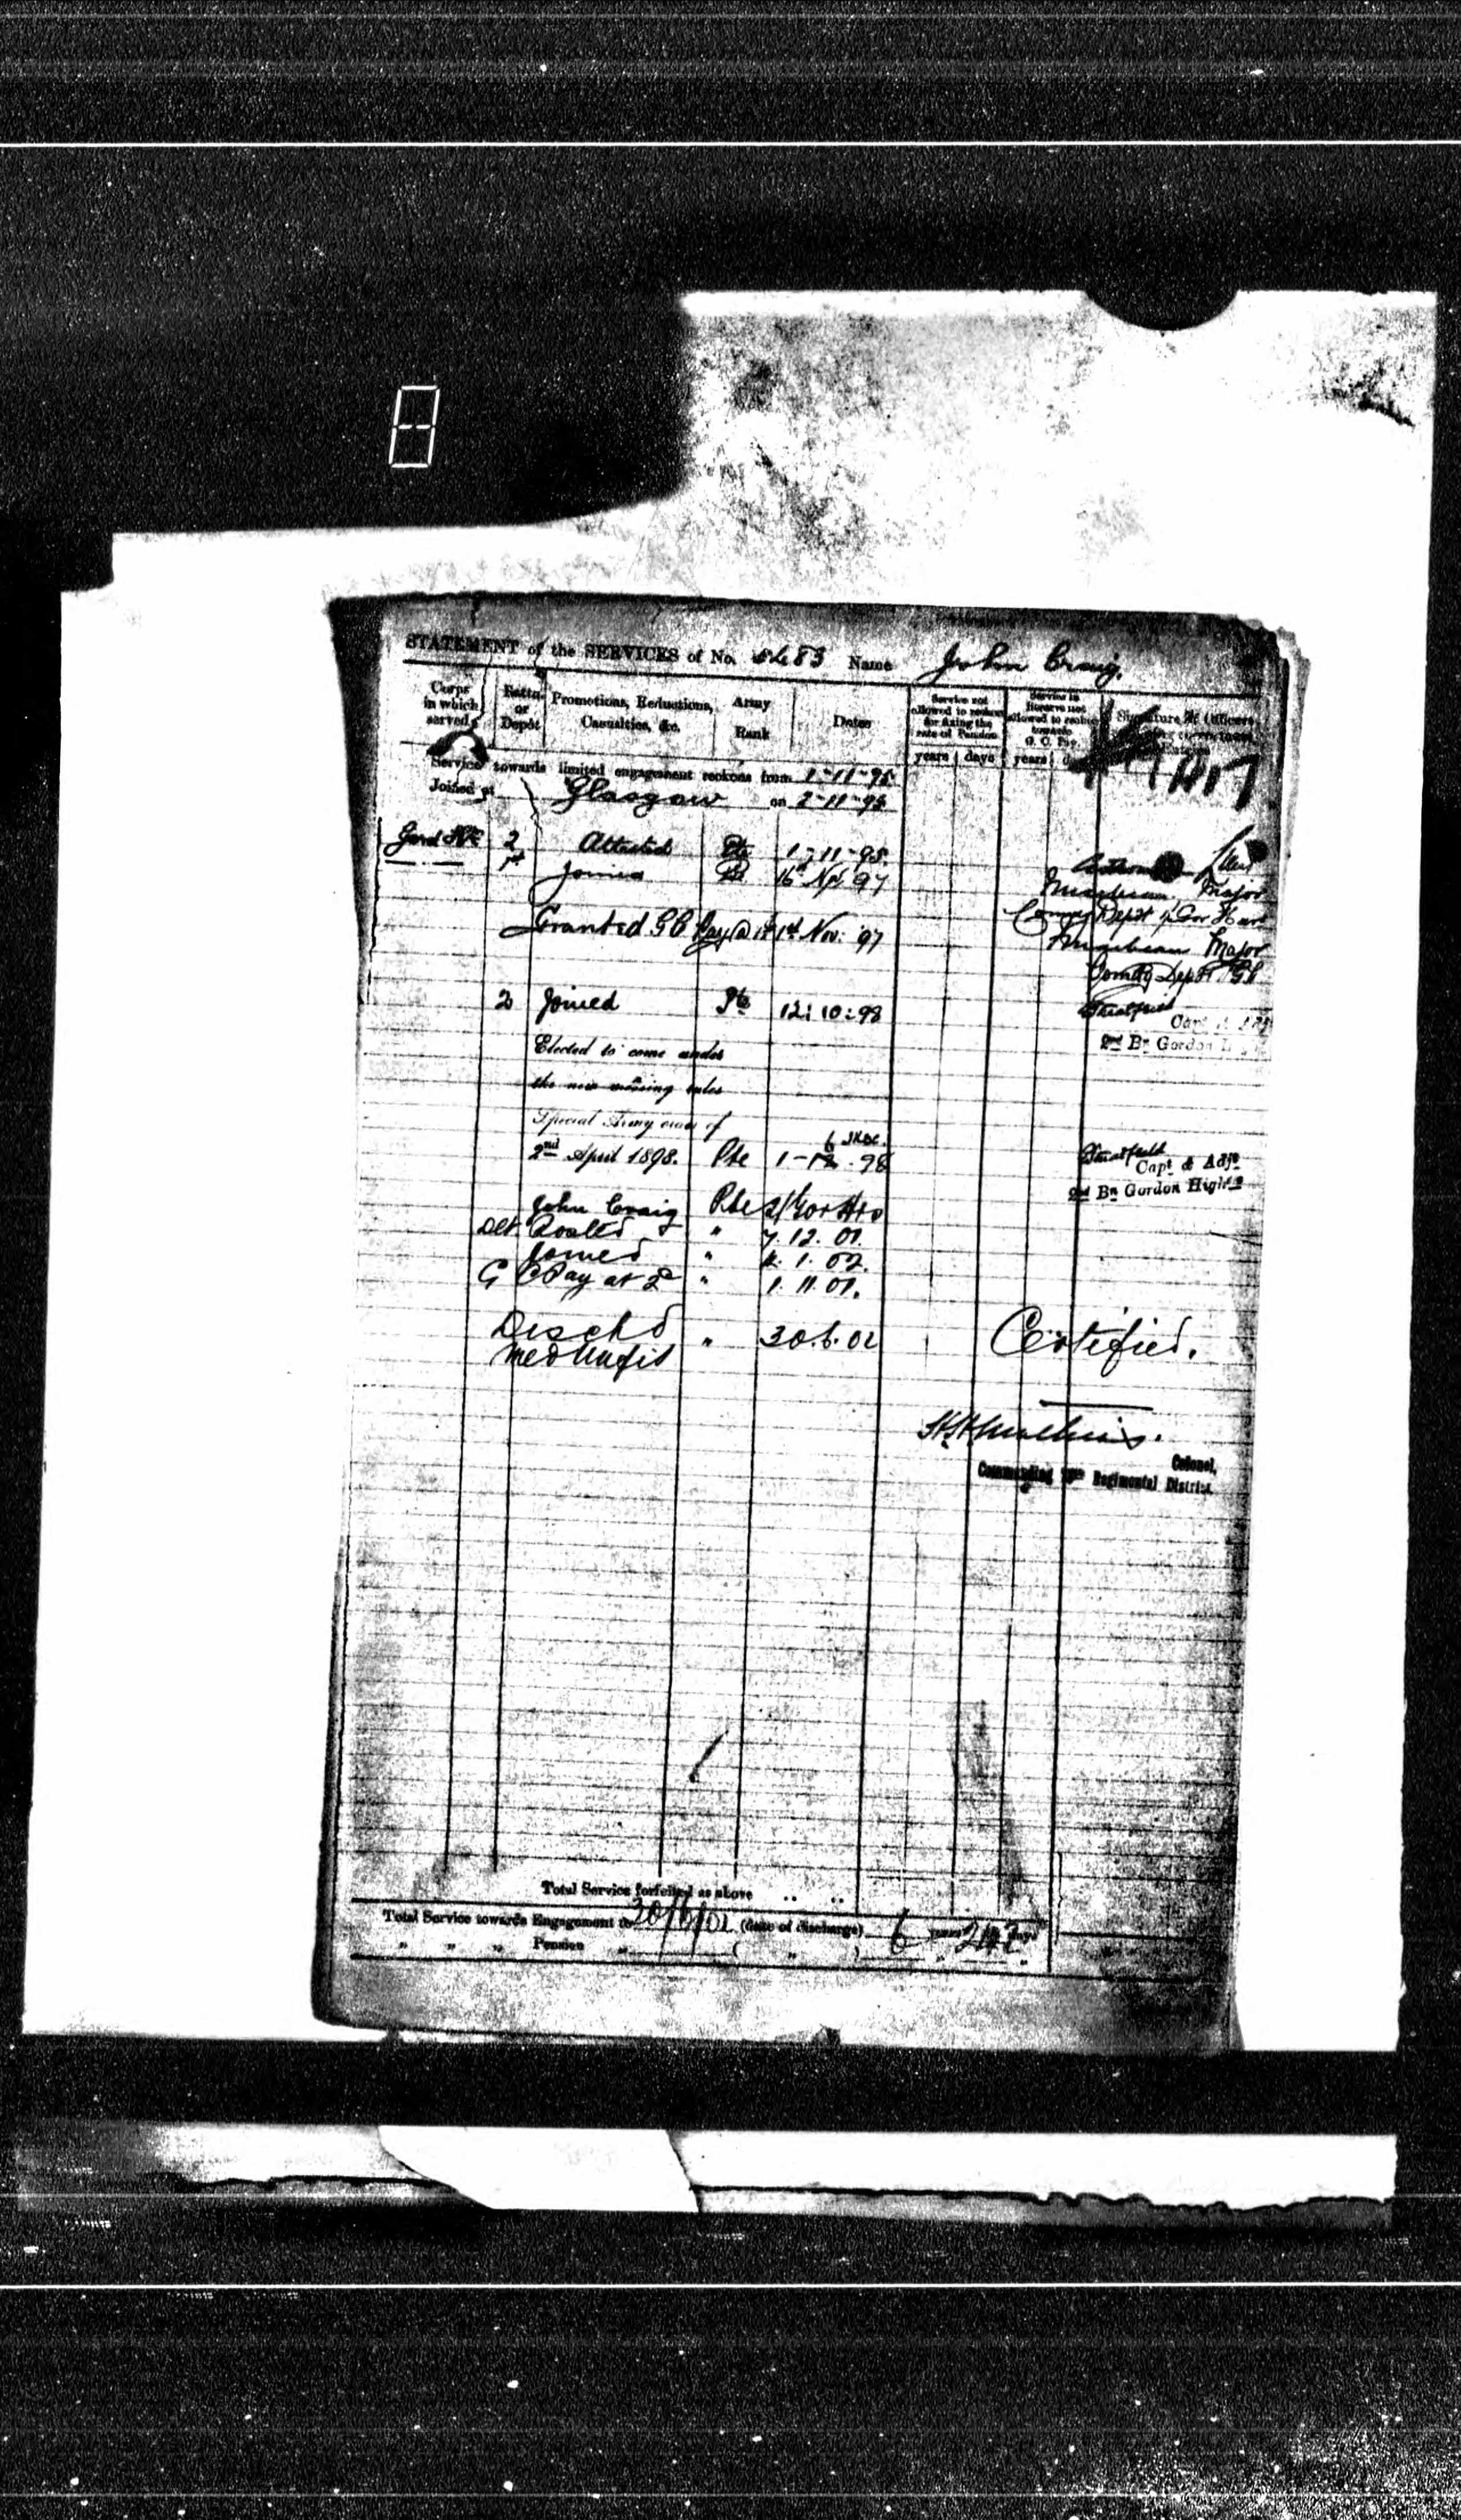 STATEMENT of the SERVICES of No. 5483 Name John Craig.
Corps in which served
Battn. or Depôt
Promotions, Reductions, Casualties, &c.
Army Rank
Dates
Service not allowed to reckon for fixing the rate of Pension
years days
Service in Reserve not allowed to reckon towards G. C. Pay
years
Signature of Officers
Service towards limited engagement reckons from 1-11-95
Joined at Glasgow on 2-11-95
Gord Hrs 2 Attested Pte 1-11-95.
1st Joined Pte 16 97 Major
Depôt
Granted GC Pay @ 1d 1st Nov: 97 Major
Depôt
2 Joined Pte 12:10:98
2nd Bn Gordon
Elected to come under
the new messing rules
Special Army order of
2nd April 1898. Pte 98 Capt & Adjt
2nd Bn Gordon Highrs
John Craig Pte 2/Gor Hrs
Det Posted " 7.12.01.
Joined " 1.02.
G C Pay at 2d " 1.11.01.
Dischd " 30.6.02 Certified.
Med Unfit
Colonel,
Commanding Regimental District.
Total Service forfeited as above .. ..
Total Service towards Engagement to 30/6/02 (date of discharge) 6 years 242 days
" " " Pension " ( " ) " "